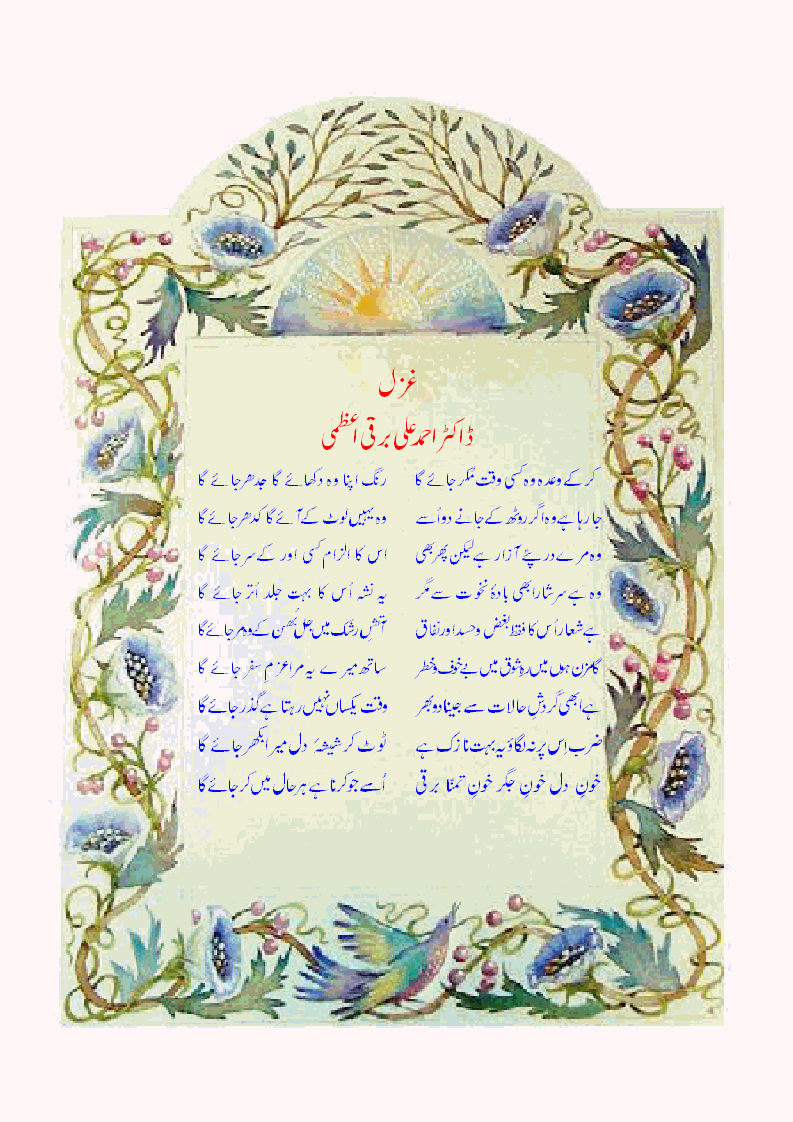 غزل
ڈاکٹر احمد علی برقی اعظمی
کر کے وعدہ وہ کسی وقت مُکر جائے گا رنگ اپنا وہ دکھائے گا جدھر جائے گا
جا رہا ہے وہ اگر روٹھ کے جانے دو اُسے وہ یہیں لوٹ کے آئے گا کدھر جائے گا
وہ مرے درپئے آزار ہے لیکن پھر بھی اس کا الزام کسی اور کے سر جائے گا
وہ ہے سرشار ابھی بادۂ نخوت سے مگر یہ نشہ اُس کا بہت جلد اُتر جائے گا
ہے شعار اُس کا فقط بغض و حسد اور نفاق آتشِ رشک میں جل بُھن کے وہ مر جائے گا
گامزن ہوں میں رہِ شوق میں بے خوف و خطر ساتھ میرے یہ مرا عزمِ سفر جائے گا
ہے ابھی گردشِ حالات سے جینا دوبھر وقت یکساں نہیں رہتا ہے گذر جائے گا
ضرب اِس پر نہ لگاؤ یہ بہت نازک ہے ٹوٹ کر شیشۂ دل میرا بکھر جائے گا
خونِ دل خونِ جگر خونِ تمنّا برقی اُسے جو کرنا ہے ہر حال میں کر جائے گا